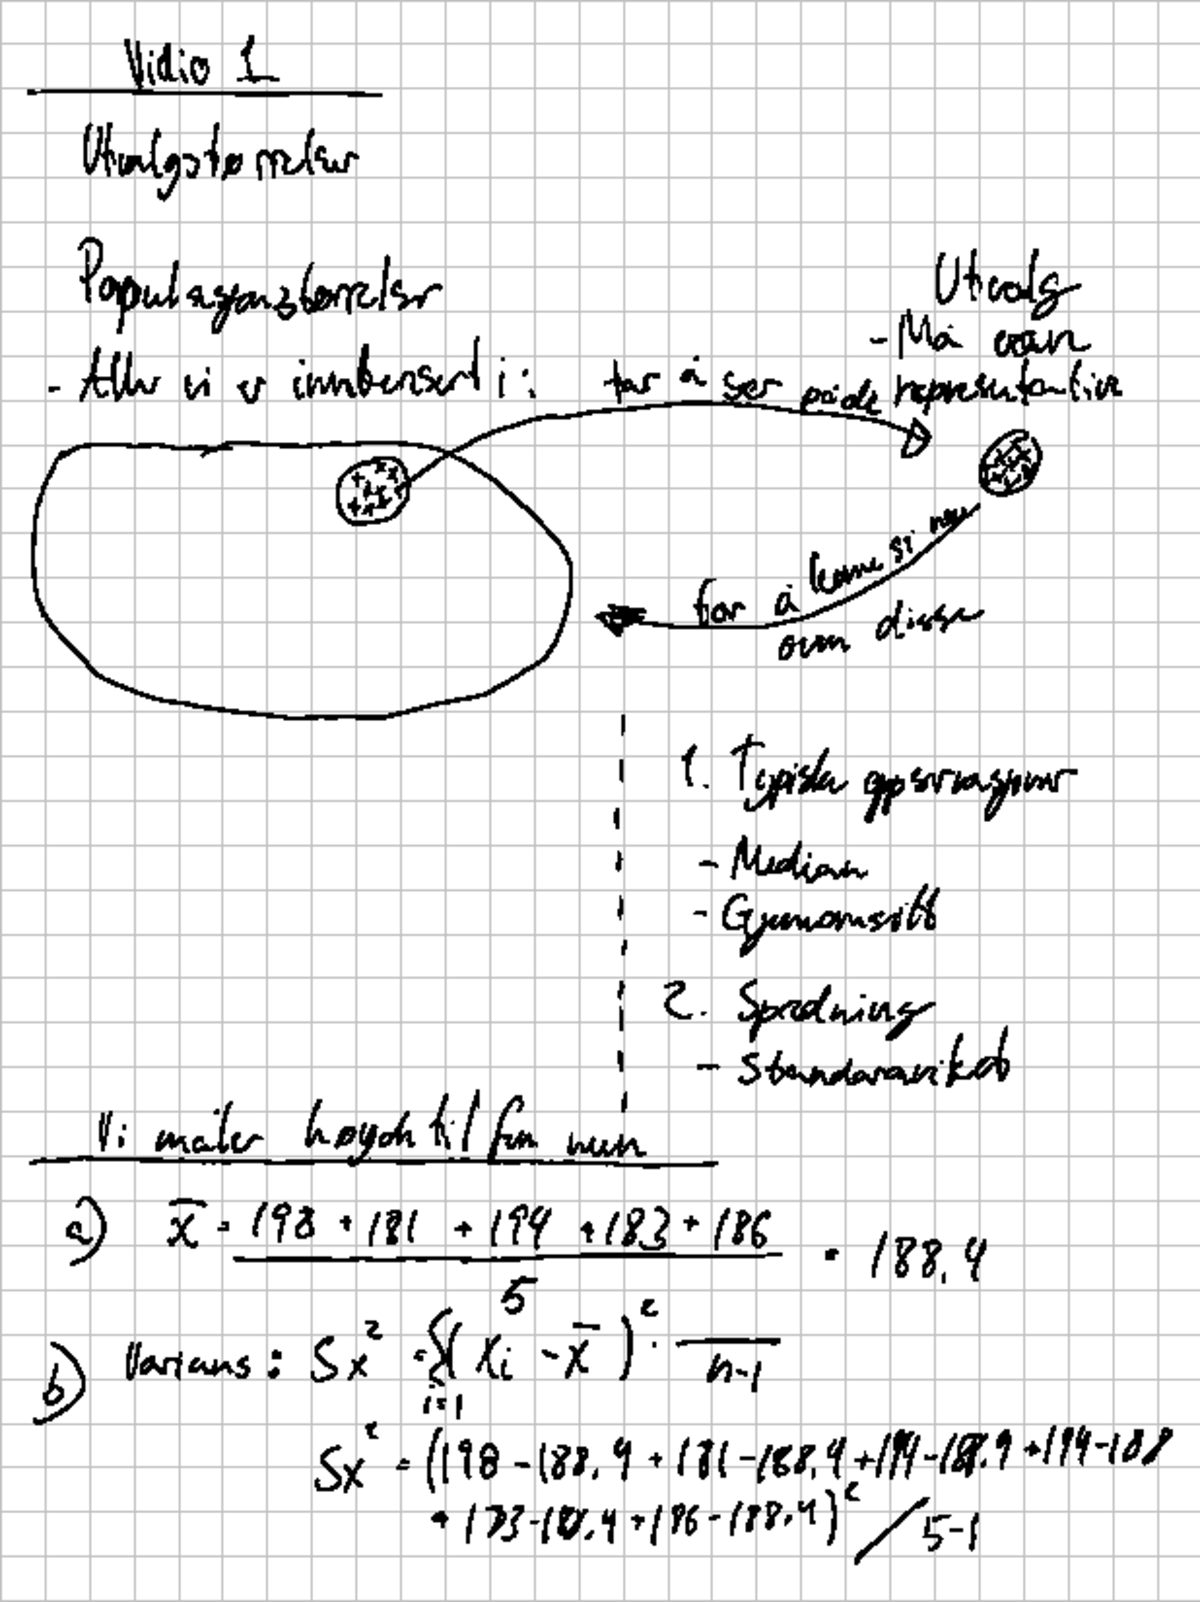 Vidio 1
Utvalgstørrelser
Populasjonstørrelser
- Alle vi er innteresert i:
Utvalg
- Må være
representative
tar å ser på de
for å kune si noe
om disse
1. Typiske
- Median
- Gjenomsnitt
2. Spredning
- Standaravikct
Vi måler høyden til fem menn
a) x̄ = 198 + 181 + 194 + 183 + 186
5
= 188,4
b) Varians: Sx² = Σ(xi - x̄)² ·
i=1
n-1
Sx² = (198 - 188,4 + 181 - 188,4 + 194 - 188,4 + 194 - 188
+ 183 - 188,4 + 186 - 188,4)² / 5-1